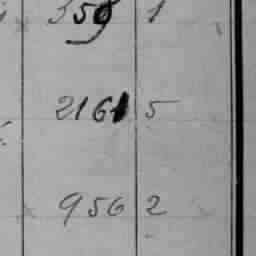 350 1
2161 5
956 2